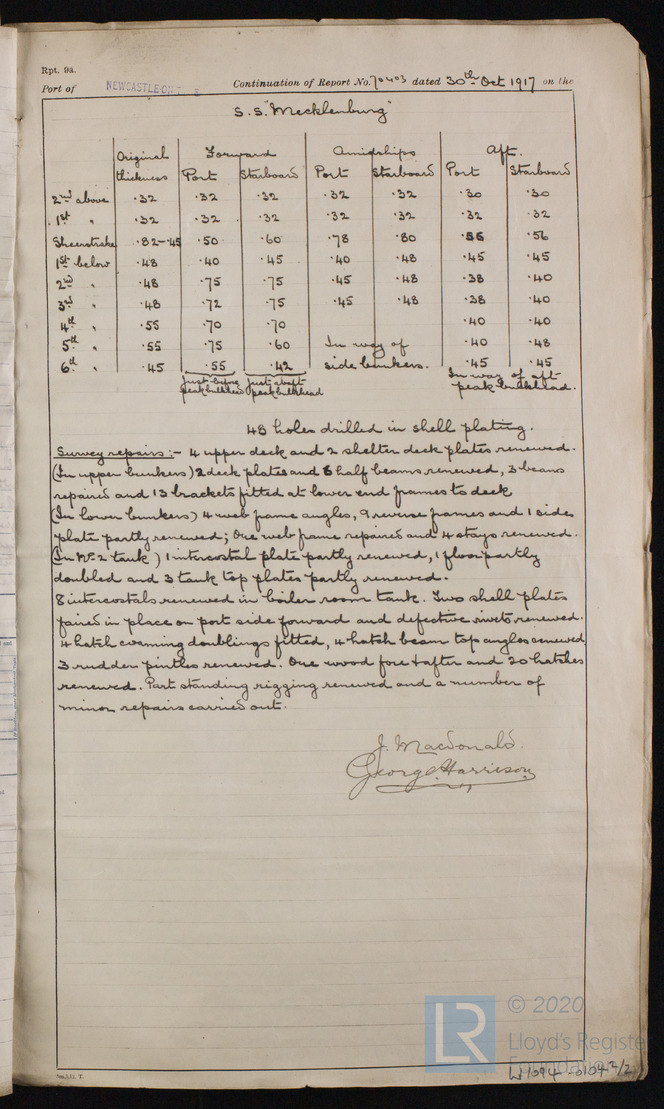 Rpt. 9a.
Port of NEWCASTLE-ON Continuation of Report No. 70403 dated 30th Oct 1917 on the
S.S. "Mecklenburg"
Original Forward Amidships Aft.
thickness Port Starboard Port Starboard Port Starboard
2nd above .32 .32 .32 .32 .32 .30 .30
1st " .32 .32 .32 .32 .32 .32 .32
Sheerstrake .82-45 .50 .60 .78 .80 .56 .56
1st below .48 .40 .45 .40 .48 .45 .45
2nd " .48 .75 .75 .45 .48 .38 .40
3rd " .48 .72 .75 .45 .48 .38 .40
4th " .55 .70 .70 .40 .40
5th " .55 .75 .60 In way of .40 .48
6th " .45 .55 .42 side bunkers. .45 .45
Just before Just abaft In way of aft
peak bulkhead peak bulkhead peak bulkhead.
48 holes drilled in shell plating.
Survey repairs:- 4 upper deck and 2 shelter deck plates renewed.
(In upper bunkers) 2 deck plates and 8 half beams renewed, 3 beams
repaired and 13 brackets fitted at lower end frames to deck
(In lower bunkers) 4 web frame angles, 9 reverse frames and 1 side
plate partly renewed; One web frame repaired and 4 stays renewed.
(In No. 2 tank) 1 intercostal plate partly renewed, 1 floor partly
doubled and 3 tank top plates partly renewed.
8 intercostals renewed in boiler room tank. Two shell plates
faired in place on port side forward and defective rivets renewed.
4 hatch coaming doublings fitted, 4 hatch beam top angles renewed
3 rudder pintles renewed. One wood fore & after and 20 hatches
renewed. Part standing rigging renewed and a number of
minor repairs carried out.
J. Macdonald.
George Harrison
LR © 2020
Lloyd's Register
Foundation